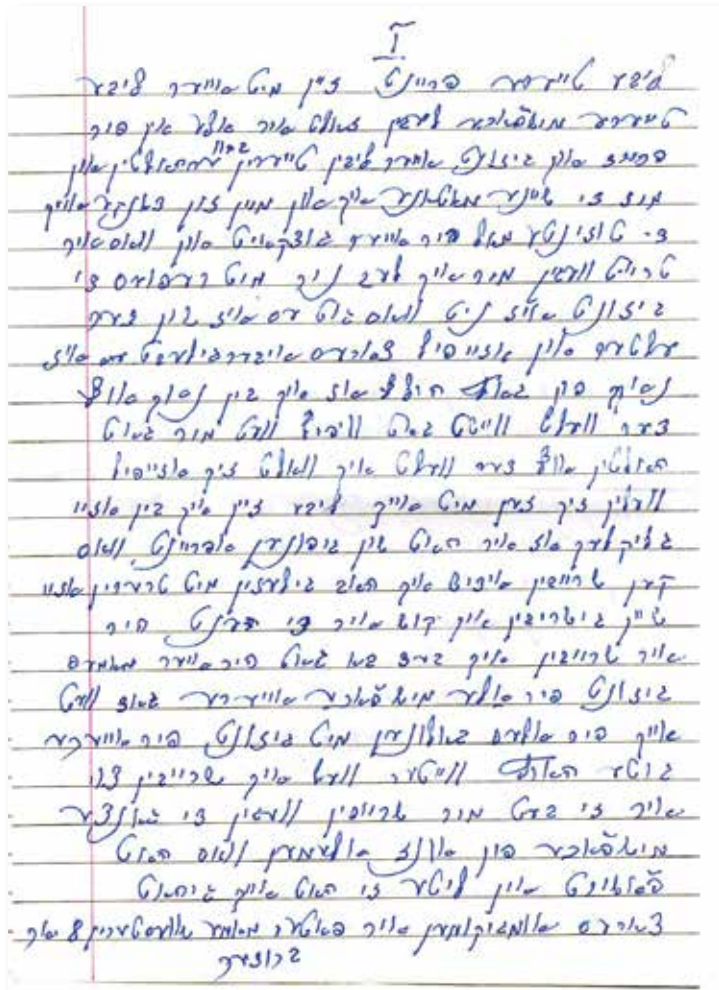 I
ליבע טייערע פריינט זיין מיט אייער ליבע
טייערע מישפאכע לעבין זאלט איר אלע אין פיר
און געזונט אייער ליבין טייערין און
די שיינע מאטאנע איך און מיין זון דאנקע אייך
די טויזינטע מאל פיר אייער גוטקייט און וואס איר
טרייסט וועגין מיר איך לעב ניר מיט רעפועס די
געזונט איז ניט וואס גוט עס איז שון דער
עלטער און אזוי פיל צארעס איבערגילעבט עס איז
נאך פון גאט הילף אז איך בין נאך אויף
דער וועלט ווייסט גאט וויפיל וועט מיר גאט
האלטין אויף דער וועלט איך וואלט זיך אזויפיל
וועלין זיך זען מיט אייך ליבע זיין איך בין אזוי
גליקלעך אז איר האט שין גיפונען אפריינט וואס
קען שרייבין אידיש איך האב גילעזין מיט טרערין אזוי
שיין גישריבין איך קוש אייר די הענט פיר
אייר שרייבין איך בעט בא גאט פיר אייער מאמעס
גיזונט פיר אלע מישפאכע אייערע גאט זאל
אייך פיר אלעס באלוינען מיט גיזונט פיר אייערע
גוטע הארץ ווייטער וועל איך שרייבין צו
איר זי בעט מיר שרייבין וועגין די גאנצע
מישפאכע פון אונז אלעמען וואס האט
פאסירט אין ליטע זי האט אייך גיהאט
צארעס אומגיקומען איר פאטער מאמע שוועסטערין 8 און
ברודער